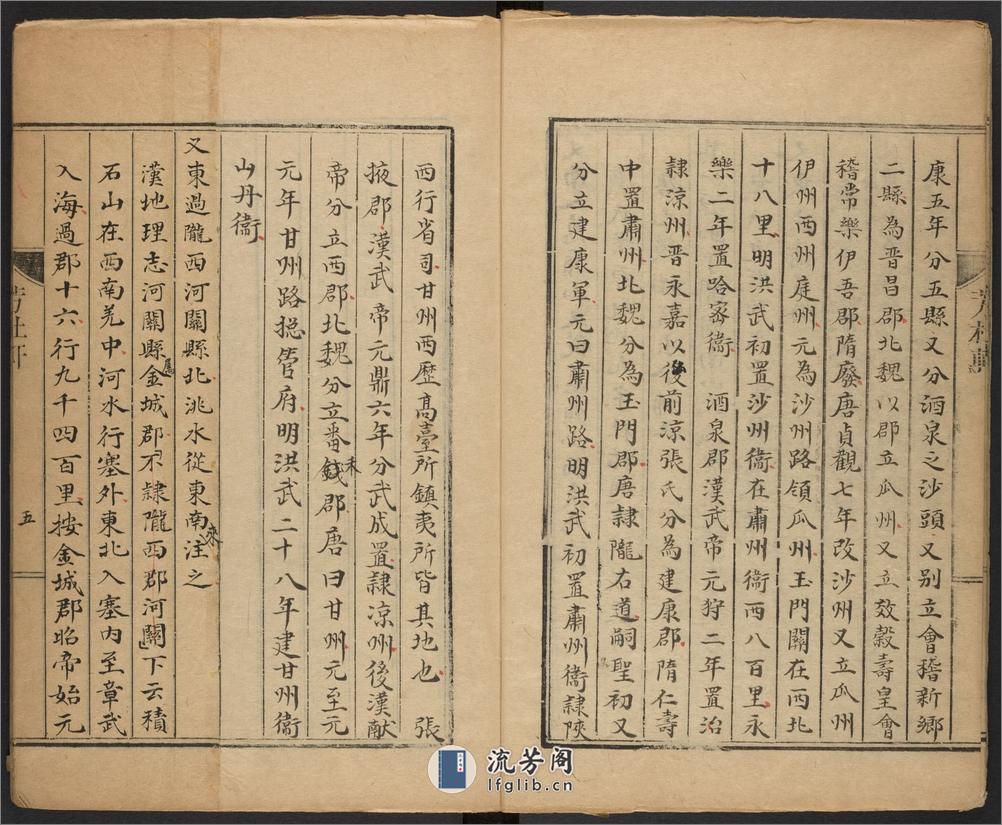 康五年分五縣又分酒泉之沙頭又别立會稽新鄉
二縣為晋昌郡北魏以郡立瓜州又立效穀壽皇會
稽常樂伊吾郡隋廢唐貞觀七年改沙州又立瓜州
伊州西州庭州元為沙州路領瓜州玉門關在西北
十八里明洪武初置沙州衞在肅州衞西八百里永
樂二年置哈密衞 酒泉郡漢武帝元狩二年置治
隸涼州晋永嘉以後前涼張氏分為建康郡隋仁壽
中置肅州北魏分為玉門郡唐隸隴右道嗣聖初又
分立建康軍元曰肅州路明洪武初置肅州衞隸陝
西行省司甘州西歷高臺所鎮夷所皆其地也 張
掖郡漢武帝元鼎六年分武威置隸凉州後漢献
帝分立西郡北魏分立番錢郡唐曰甘州元至元
末
元年甘州路揔管府明洪武二十八年建甘州衞
山丹衞
又東過隴西河關縣北洮水從東南注之
來
漢地理志河關縣金城郡不隸隴西郡河關下云積
屬
石山在西南羌中河水行塞外東北入塞内至章武
入海過郡十六行九千四百里按金城郡昭帝始元
五
流芳阁
lfglib.cn